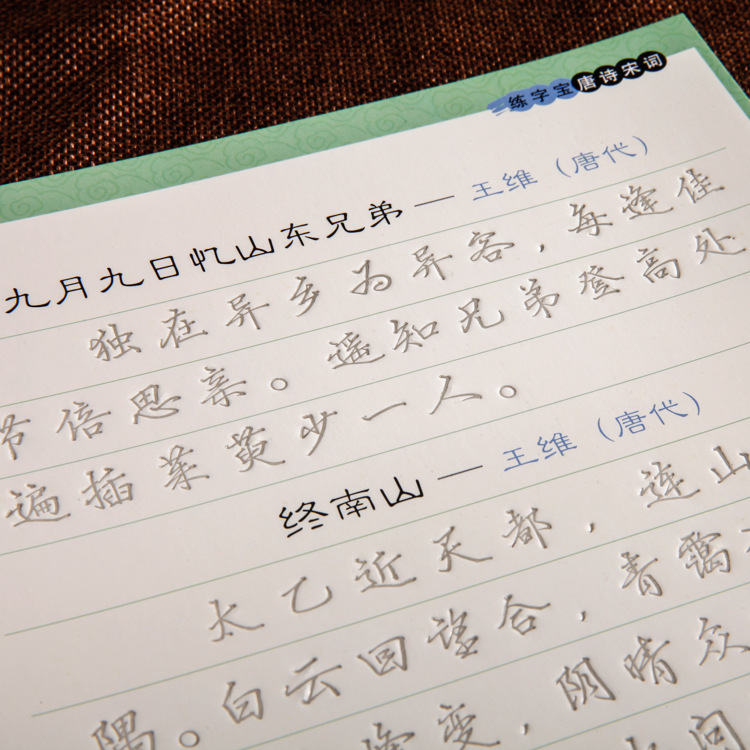 练字宝唐诗宋词
九月九日忆山东兄弟—王维（唐代）
独在异乡为异客，每逢佳
节倍思亲。遥知兄弟登高处
遍插茱萸少一人。
终南山—王维（唐代）
太乙近天都，连山
隅。白云回望合，青霭
变，阴晴众
问